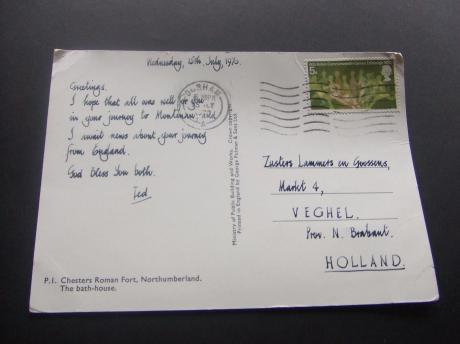 Wednesday, 15th, July, 1970.
Greetings.
I hope that all was well for you
in your journey to and
I await news about your journey
from England.
God bless you both.
Ted.
P.1. Chesters Roman Fort, Northumberland.
The bath-house.
Ministry of Public Building and Works. Crown copyright
Printed in England by George Pulman & Sons Ltd.
DURHAM
5d
Zusters Lammers en Goossens,
Markt 4,
VEGHEL.
Prov. N. Brabant.
HOLLAND.